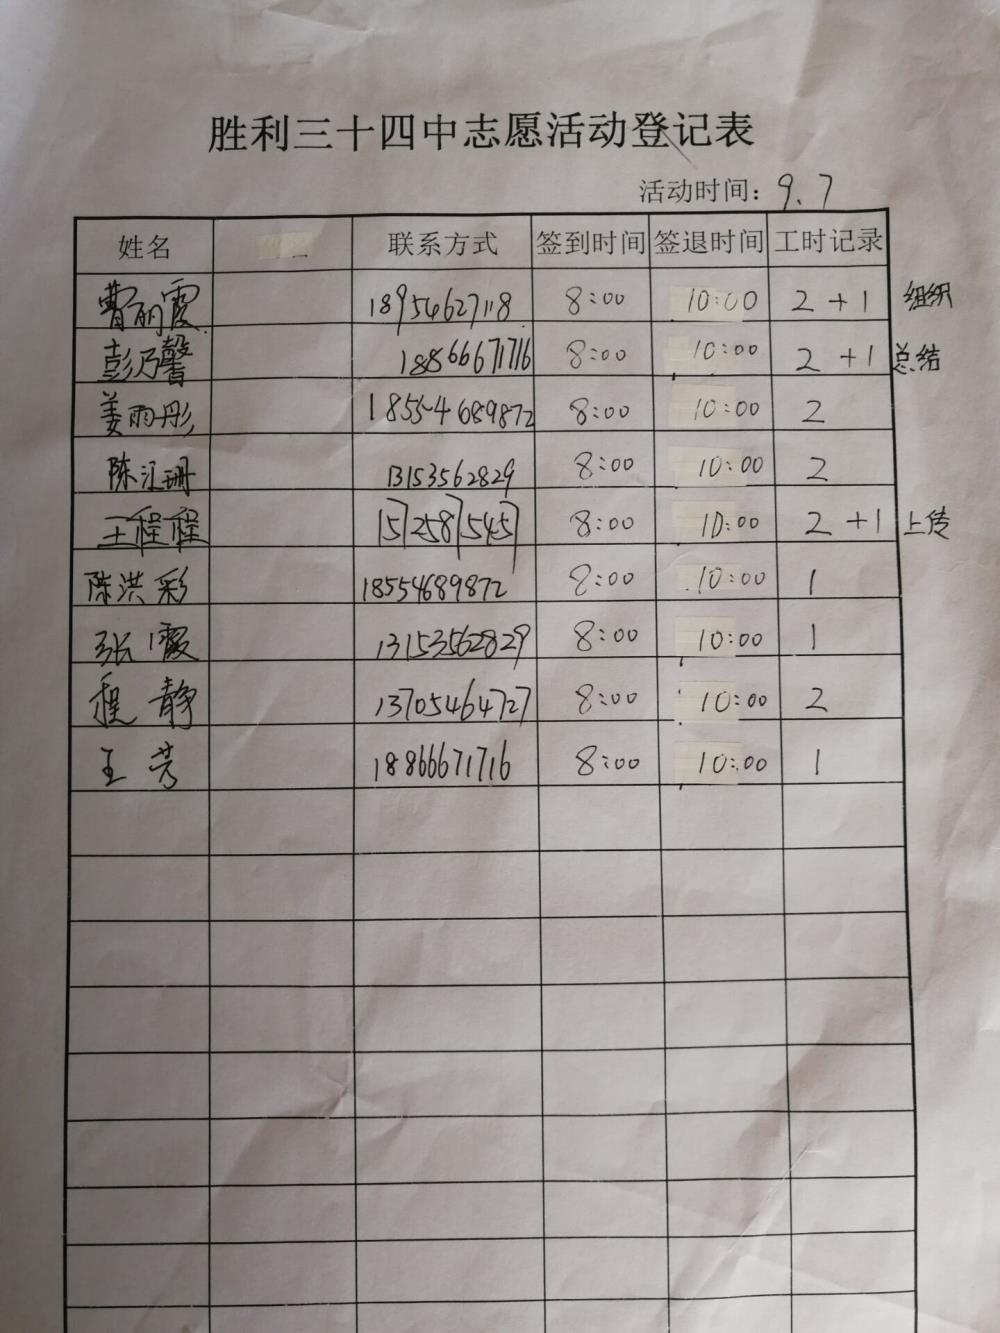 胜利三十四中志愿活动登记表
活动时间：9.7
姓名 联系方式 签到时间 签退时间 工时记录
曹丽霞 18954627118 8:00 10:00 2+1 组织
彭乃馨 18866671716 8:00 10:00 2+1 总结
姜雨彤 18554689872 8:00 10:00 2
陈江珊 13153562829 8:00 10:00 2
王程程 15725871545 8:00 10:00 2+1 上传
陈洪彩 18554689872 8:00 10:00 1
张霞 13153562829 8:00 10:00 1
程静 13705464727 8:00 10:00 2
王芳 18866671716 8:00 10:00 1